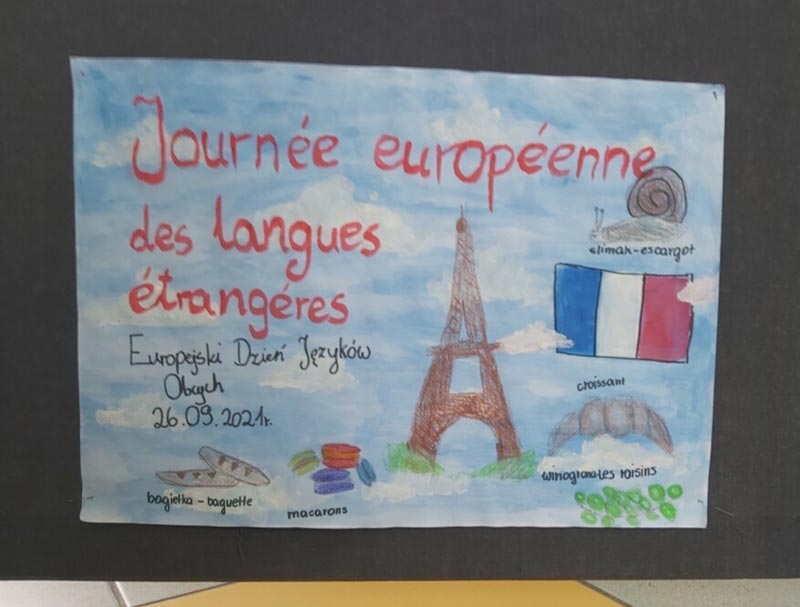 Journée européenne
des langues
étrangéres
Europejski Dzień Języków
Obcych
26.09.2021r.
ślimak-escargot
croissant
winogrona-les raisins
bagietka - baguette
macarons